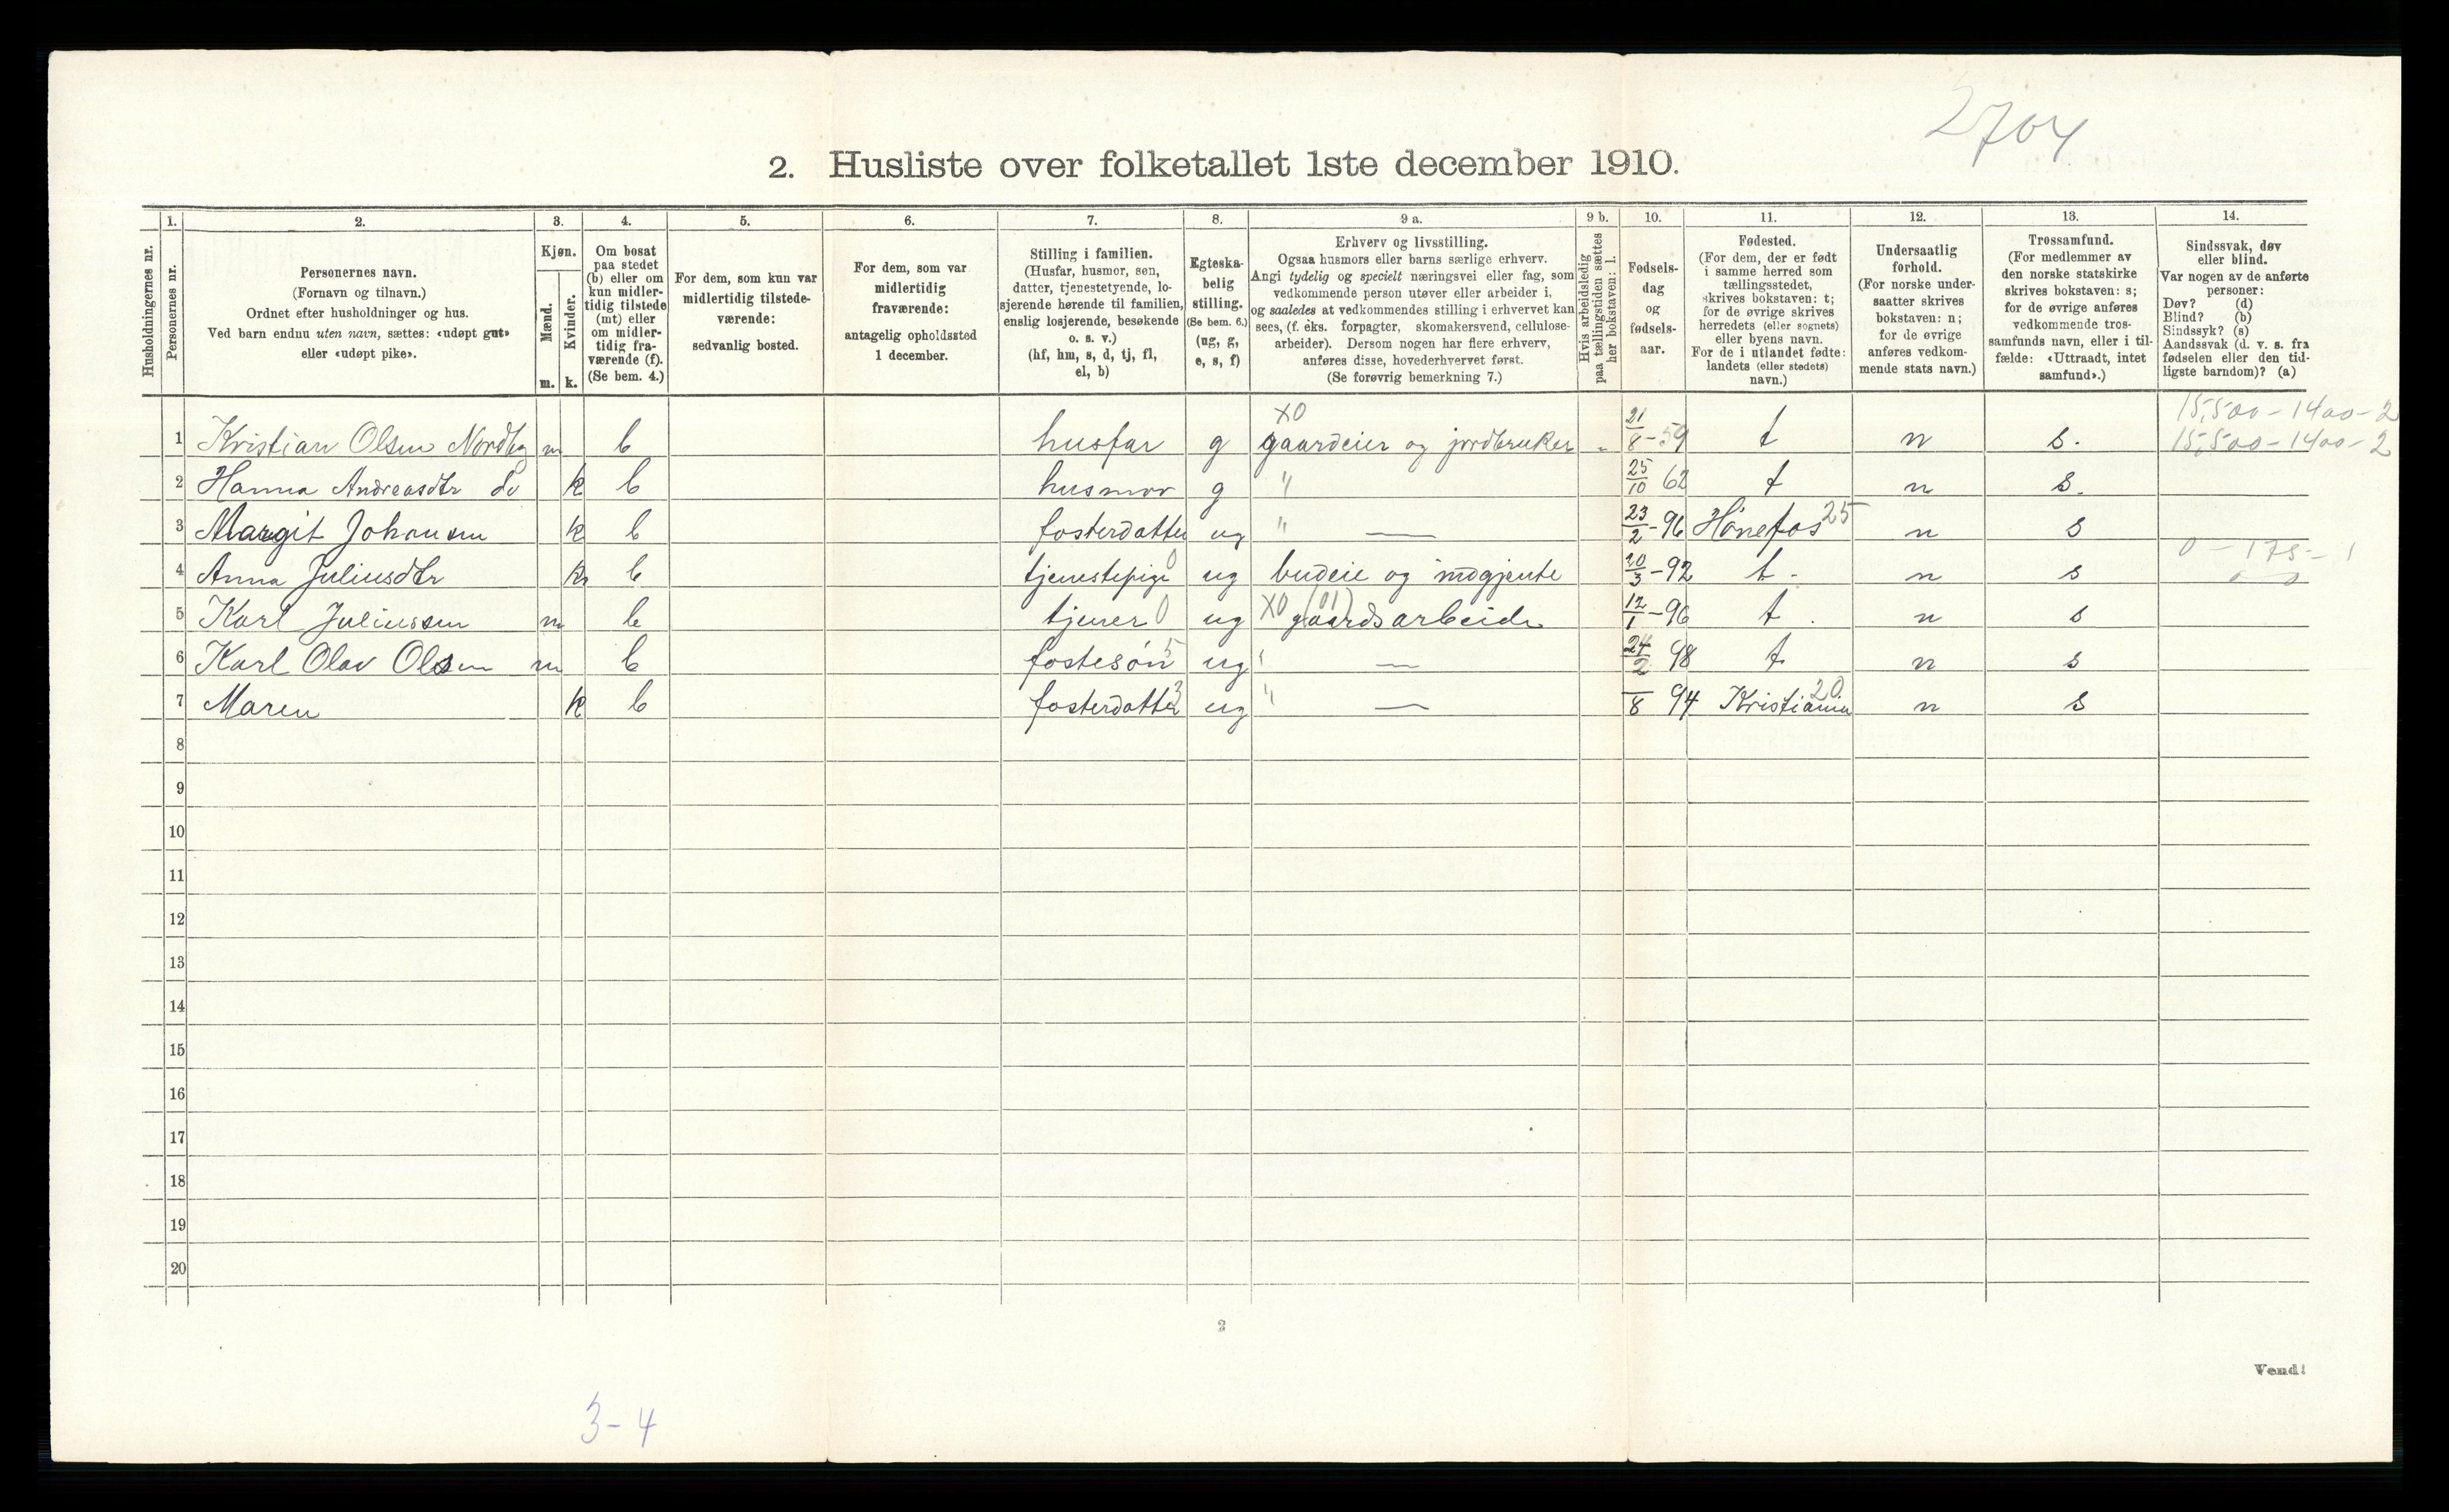 2704
2. Husliste over folketallet 1ste december 1910.
Husholdningernes nr.
1. Personernes nr.
2. Personernes navn. (Fornavn og tilnavn.) Ordnet efter husholdninger og hus. Ved barn endnu uten navn, sættes: «udøpt gut» eller «udøpt pike».
3. Kjøn. Mænd. m. Kvinder. k.
4. Om bosat paa stedet (b) eller om kun midlertidig tilstede (mt) eller om midlertidig fraværende (f). (Se bem. 4.)
5. For dem, som kun var midlertidig tilstedeværende: sedvanlig bosted.
6. For dem, som var midlertidig fraværende: antagelig opholdssted 1 december.
7. Stilling i familien. (Husfar, husmor, søn, datter, tjenestetyende, losjerende hørende til familien, enslig losjerende, besøkende o. s. v.) (hf, hm, s, d, tj, fl, el, b)
8. Egteskabelig stilling. (Se bem. 6.) (ug, g, e, s, f)
9 a. Erhverv og livsstilling. Ogsaa husmors eller barns særlige erhverv. Angi tydelig og specielt næringsvei eller fag, som vedkommende person utøver eller arbeider i, og saaledes at vedkommendes stilling i erhvervet kan sees, (f. eks. forpagter, skomakersvend, cellulosearbeider). Dersom nogen har flere erhverv, anføres disse, hovederhvervet først. (Se forøvrig bemerkning 7.)
9 b. Hvis arbeidsledig paa tællingstiden sættes her bokstaven: l.
10. Fødselsdag og fødselsaar.
11. Fødested. (For dem, der er født i samme herred som tællingsstedet, skrives bokstaven: t; for de øvrige skrives herredets (eller sognets) eller byens navn. For de i utlandet fødte: landets (eller stedets) navn.)
12. Undersaatlig forhold. (For norske undersaatter skrives bokstaven: n; for de øvrige anføres vedkommende stats navn.)
13. Trossamfund. (For medlemmer av den norske statskirke skrives bokstaven: s; for de øvrige anføres vedkommende trossamfunds navn, eller i tilfælde: «Uttraadt, intet samfund».)
14. Sindssvak, døv eller blind. Var nogen av de anførte personer: Døv? (d) Blind? (b) Sindssyk? (s) Aandssvak (d. v. s. fra fødselen eller den tidligste barndom)? (a)
15,500 - 1400 - 2
1 Kristian Olsen Nordby m b husfar g XO gaardeier og jordbruker - 21/8 - 59 t n s. 15,500 - 1400 - 2
2 Hanna Andreasdtr do k b husmor g " 25/10 62 t n s.
3 Margit Johansen k b fosterdatter ug " — 23/2 - 96 Hønefos 25 n s
0 - 175 - 1
4 Anna Juliusdtr k b tjenestepige 0 ug budeie og indgjente 20/3 - 92 t - n s
5 Karl Juliussen m b tjener 0 ug XO (01) gaardsarbeide 12/1 - 96 t . n s
6 Karl Olav Olsen m b fostesøn 5 ug " — 24/2 98 t n s
7 Maren k b fosterdatter 3 ug " — —/8 94 Kristiania 20 n s
8
9
10
11
12
13
14
15
16
17
18
19
20
2
Vend!
3 - 4